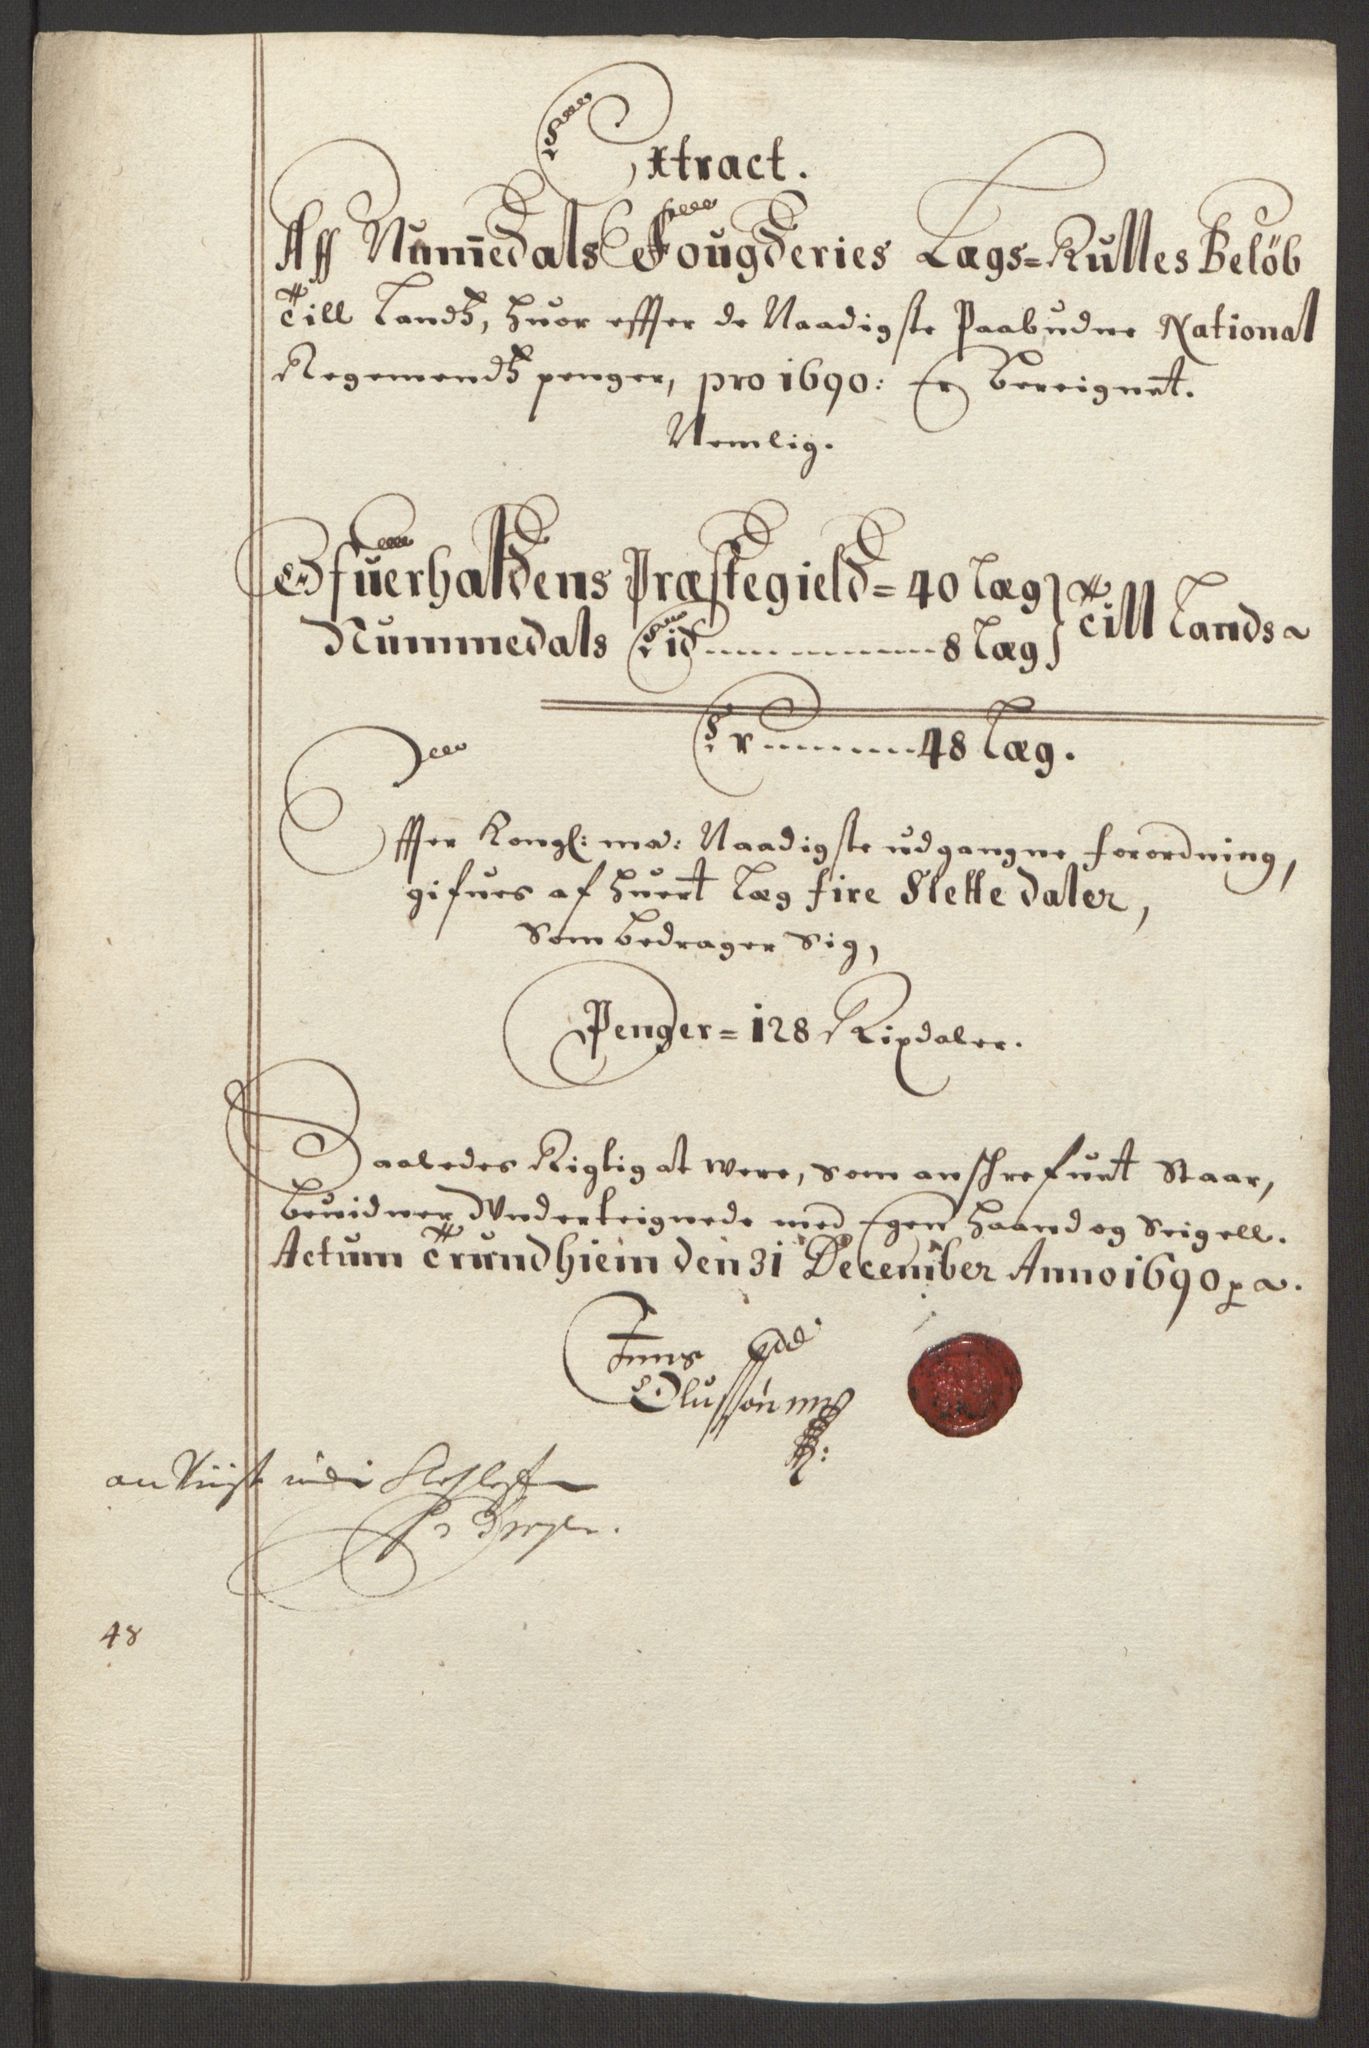 Extract.
Aff Nummedals Fougderies Lægs=Rulles Beløb
Till Landß, huor effter de Naadigste Paabudne National
Regementß penger, pro 1690: Er bereignet.
Nemlig.
Ofuerhaldens Præstegield = 40 Læg } Till Lands
Nummedals Eid ---------- 8 Læg }
Er ------- 48 Læg.
Effter Kongl: ma: Naadigste udgangne forordning,
gifues af huert Læg fire Slette daler,
Som bedrager Sig,
Penger = 128 Rixdaler.
Saaledes Rigtig at were, Som anschrefuet Staar,
beuidner Underteignede med Egen haand og Seigell.
Actum Trundhiem den 31 December Anno 1690
Olussøn
48